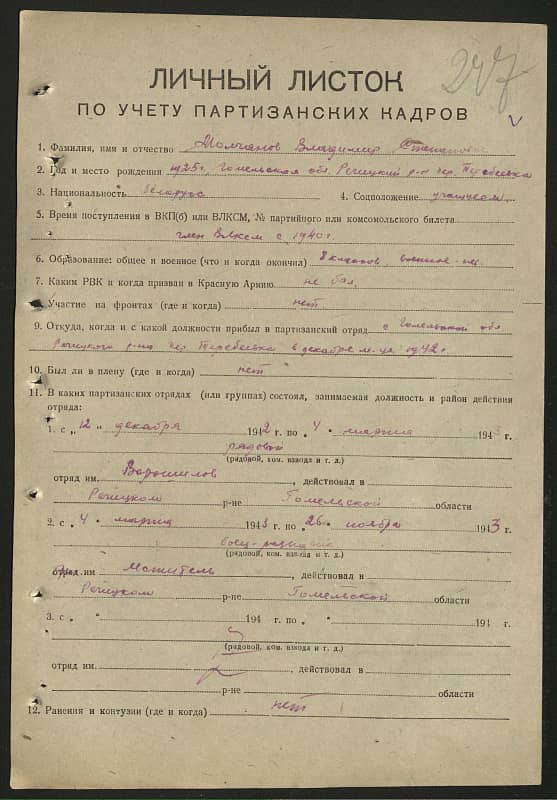 247
ЛИЧНЫЙ ЛИСТОК
ПО УЧЕТУ ПАРТИЗАНСКИХ КАДРОВ
1. Фамилия, имя и отчество Молчанов Владимир Степанович
2. Год и место рождения 1925 г. Гомельская обл. Речицкий р-н дер. Теребеевка
3. Национальность беларус 4. Соцположение учащийся
5. Время поступления в ВКП(б) или ВЛКСМ, № партийного или комсомольского билета
член ВЛКСМ с 1940 г.
6. Образование: общее и военное (что и когда окончил) 8 классов, военное - нет
7. Каким РВК и когда призван в Красную Армию не был
8. Участие на фронтах (где и когда) нет
9. Откуда, когда и с какой должности прибыл в партизанский отряд с Гомельской обл
Речицкого р-на дер. Теребеевка в декабре м-це 1942 г
10. Был ли в плену (где и когда) нет
11. В каких партизанских отрядах (или группах) состоял, занимаемая должность и район действия
отряда:
1. с „ 12 " декабря 1942 г. по „ 4 " марта 1943 г.
рядовой
(рядовой, ком. взвода и т. д.)
отряд им. Ворошилов , действовал в
Речицком р-не Гомельской области
2. с „ 4 " марта 1943 г. по „ 26 " ноября 1943 г.
боец-
(рядовой, ком. взвода и т. д.)
отряд им Мститель , действовал в
Речицком р-не Гомельской области
3. с „ " 194 г. по „ " 194 г.
(рядовой, ком. взвода и т. д.)
отряд им. , действовал в
р-не области
12. Ранения и контузии (где и когда) нет